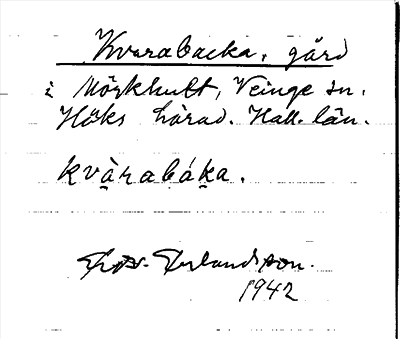 Kvarabacka, gård
i Mörkhult, Veinge sn.
Höks härad. Hall. län.
kvàrabáka.
Erlandsson.
1942